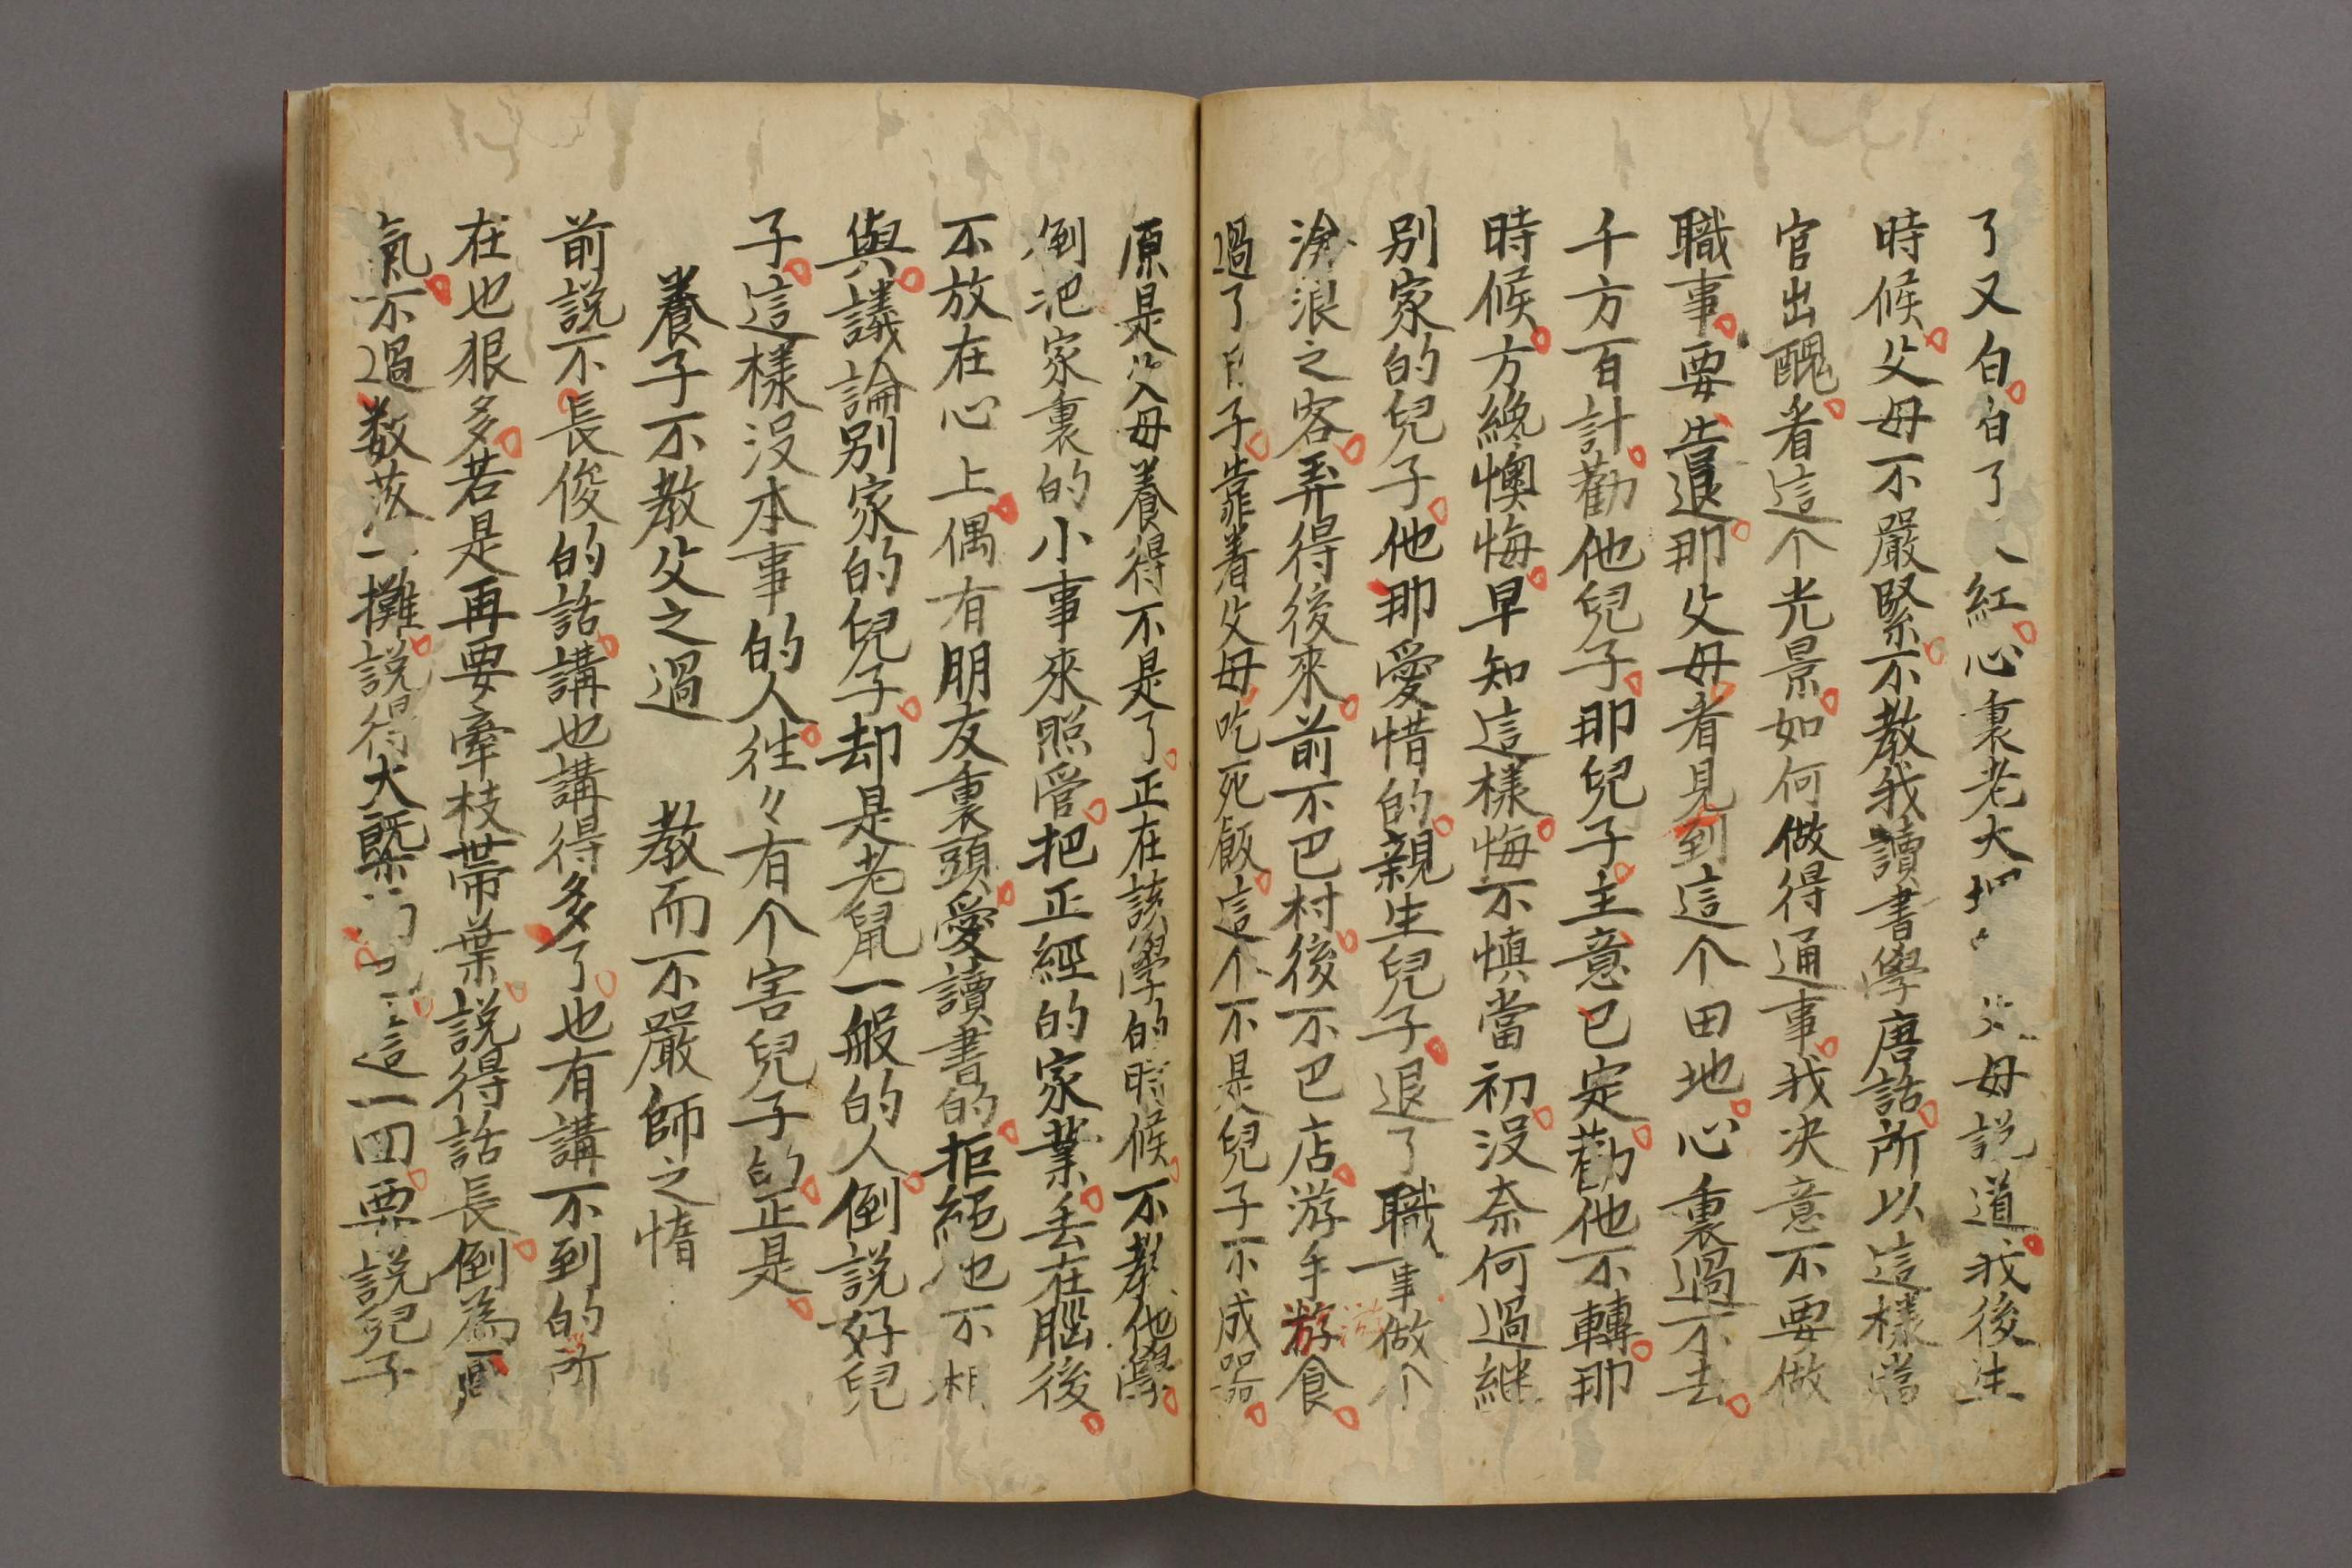 了又白白了紅心裏老大 父母說道我後生
時候父母不嚴緊不教我讀書學唐話所以這樣當
官出醜看這个光景如何做得通事我决意不要做
職事要告退那父母看見到這个田地心裏過不去
千方百計勸他兒子那兒子主意已定勸他不轉那
時候方纔懊悔早知這樣悔不慎當初没奈何過継
别家的兒子他那愛惜的親生兒子退了職事做个
滄浪之客弄得後來前不巴村後不巴店游手游食
過了日子靠着父母吃死飯這个不是兒子不成器
原是父母養得不是了正在該學的時候不教他學
倒把家裏的小事來照管把正經的家業丢在腦後
不放在心上偶有朋友裏頭愛讀書的拒絕他不相
與議論别家的兒子却是老鼠一般的人倒說好兒
子這樣没本事的人往々有个害兒子的正是
養子不教父之過 教而不嚴師之惰
前說不長俊的話講也講得多了也有講不到的所
在也狠多若是再要牽枝帶葉說得話長倒為厭
氣不過数落一攤說得大槩 這一回要說兒子